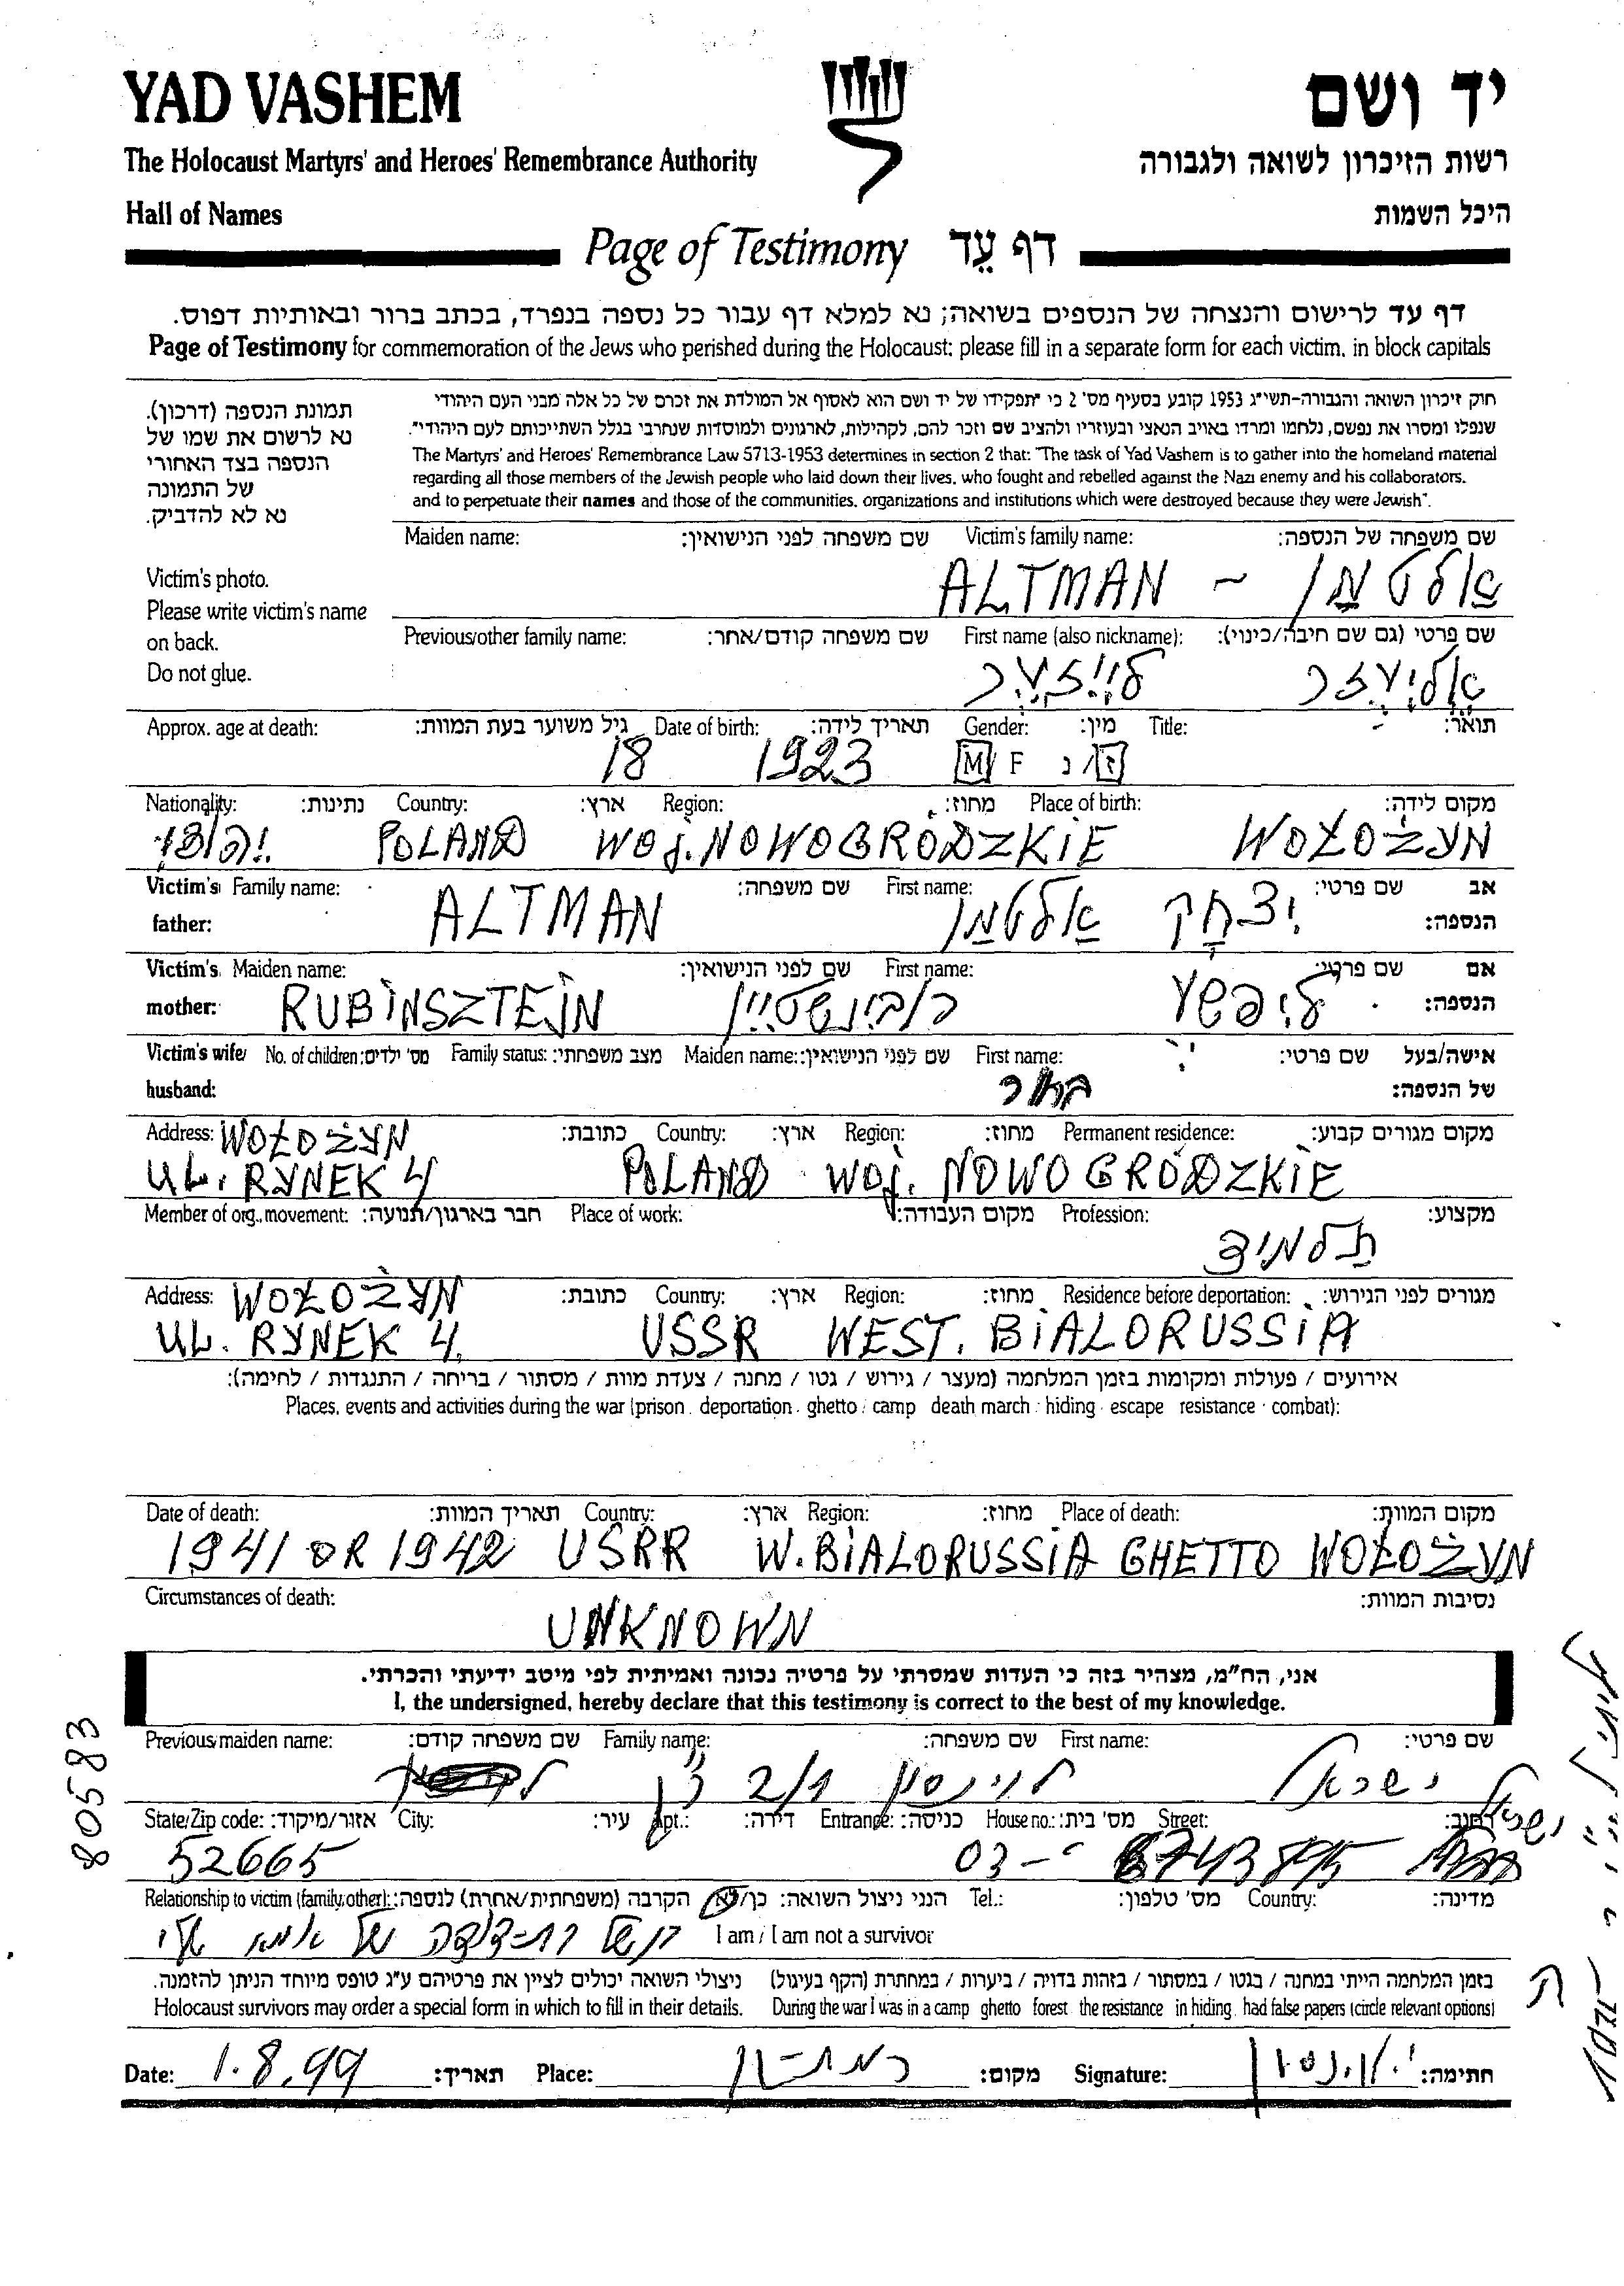 YAD VASHEM
יד ושם
The Holocaust Martyrs' and Heroes' Remembrance Authority
רשות הזיכרון לשואה ולגבורה
Hall of Names
היכל השמות
Page of Testimony דף עֵד
דף עד לרישום והנצחה של הנספים בשואה; נא למלא דף עבור כל נספה בנפרד, בכתב ברור ובאותיות דפוס.
Page of Testimony for commemoration of the Jews who perished during the Holocaust: please fill in a separate form for each victim, in block capitals
תמונת הנספה (דרכון).
נא לרשום את שמו של
הנספה בצד האחורי
של התמונה
נא לא להדביק.
Victim's photo.
Please write victim's name
on back.
Do not glue.
חוק זיכרון השואה והגבורה-תשי"ג 1953 קובע בסעיף מס' 2 כי "תפקידו של יד ושם הוא לאסוף אל המולדת את זכרם של כל אלה מבני העם היהודי
שנפלו ומסרו את נפשם, נלחמו ומרדו באויב הנאצי ובעוזריו ולהציב שם וזכר להם, לקהילות, לארגונים ולמוסדות שנחרבו בגלל השתייכותם לעם היהודי".
The Martyrs' and Heroes' Remembrance Law 5713-1953 determines in section 2 that: "The task of Yad Vashem is to gather into the homeland material
regarding all those members of the Jewish people who laid down their lives, who fought and rebelled against the Nazi enemy and his collaborators,
and to perpetuate their names and those of the communities, organizations and institutions which were destroyed because they were Jewish".
Maiden name: שם משפחה לפני הנישואין: Victim's family name: שם משפחה של הנספה:
ALTMAN ~ אַלטמַן
Previous/other family name: שם משפחה קודם/אחר: First name (also nickname): שם פרטי (גם שם חיבה/כינוי):
לייזער אליעזר
Approx. age at death: גיל משוער בעת המוות: Date of birth: תאריך לידה: Gender: מין: Title: תואר:
18 1923 M/F ז/נ
Nationality: נתינות: Country: ארץ: Region: מחוז: Place of birth: מקום לידה:
POLAND WOJ. NOWOGRÓDZKIE WOŁOŻYN
Victim's father: Family name: שם משפחה: First name: שם פרטי: אב הנספה:
ALTMAN אַלטמַן יצחָק
Victim's mother: Maiden name: שם לפני הנישואין: First name: שם פרטי: אם הנספה:
RUBINSZTEJN רובינשטיין ליפשע
Victim's wife/husband: No. of children: מס' ילדים: Family status: מצב משפחתי: Maiden name: שם לפני הנישואין: First name: שם פרטי: אישה/בעל של הנספה:
Address: כתובת: Country: ארץ: Region: מחוז: Permanent residence: מקום מגורים קבוע:
WOŁOŻYN
UL. RYNEK 4 POLAND WOJ. NOWOGRÓDZKIE
Member of org., movement: חבר בארגון/תנועה: Place of work: מקום העבודה: Profession: מקצוע:
תלמיד
Address: כתובת: Country: ארץ: Region: מחוז: Residence before deportation: מגורים לפני הגירוש:
WOŁOŻYN
UL. RYNEK 4. USSR WEST. BIALORUSSIA
אירועים / פעולות ומקומות בזמן המלחמה (מעצר / גירוש / גטו / מחנה / צעדת מוות / מסתור / בריחה / התנגדות / לחימה):
Places, events and activities during the war (prison, deportation, ghetto, camp, death march, hiding, escape, resistance, combat):
Date of death: תאריך המוות: Country: ארץ: Region: מחוז: Place of death: מקום המוות:
1941 OR 1942 USRR W. BIALORUSSIA GHETTO WOŁOŻYN
Circumstances of death: נסיבות המוות:
UNKNOWN
אני, הח"מ, מצהיר בזה כי העדות שמסרתי על פרטיה נכונה ואמיתית לפי מיטב ידיעתי והכרתי.
I, the undersigned, hereby declare that this testimony is correct to the best of my knowledge.
Previous/maiden name: שם משפחה קודם: Family name: שם משפחה: First name: שם פרטי:
לוינסון ישראל
State/Zip code: אזור/מיקוד: City: עיר: Apt.: דירה: Entrance: כניסה: House no.: מס' בית: Street: רחוב:
52665 03-
Relationship to victim (family, other): הקרבה (משפחתית/אחרת) לנספה: הנני ניצול השואה: כן/לא Tel.: מס' טלפון: Country: מדינה:
בן של בת-דודה של אמא שלי I am / I am not a survivor
בזמן המלחמה הייתי במחנה / בגטו / במסתור / בזהות בדויה / ביערות / במחתרת (הקף בעיגול) ניצולי השואה יכולים לציין את פרטיהם ע"ג טופס מיוחד הניתן להזמנה.
Holocaust survivors may order a special form in which to fill in their details. During the war I was in a camp ghetto forest the resistance in hiding had false papers (circle relevant options)
Date: 1.8.99 תאריך: Place: רמת-גן מקום: Signature: י. לוינסון חתימה:
80583